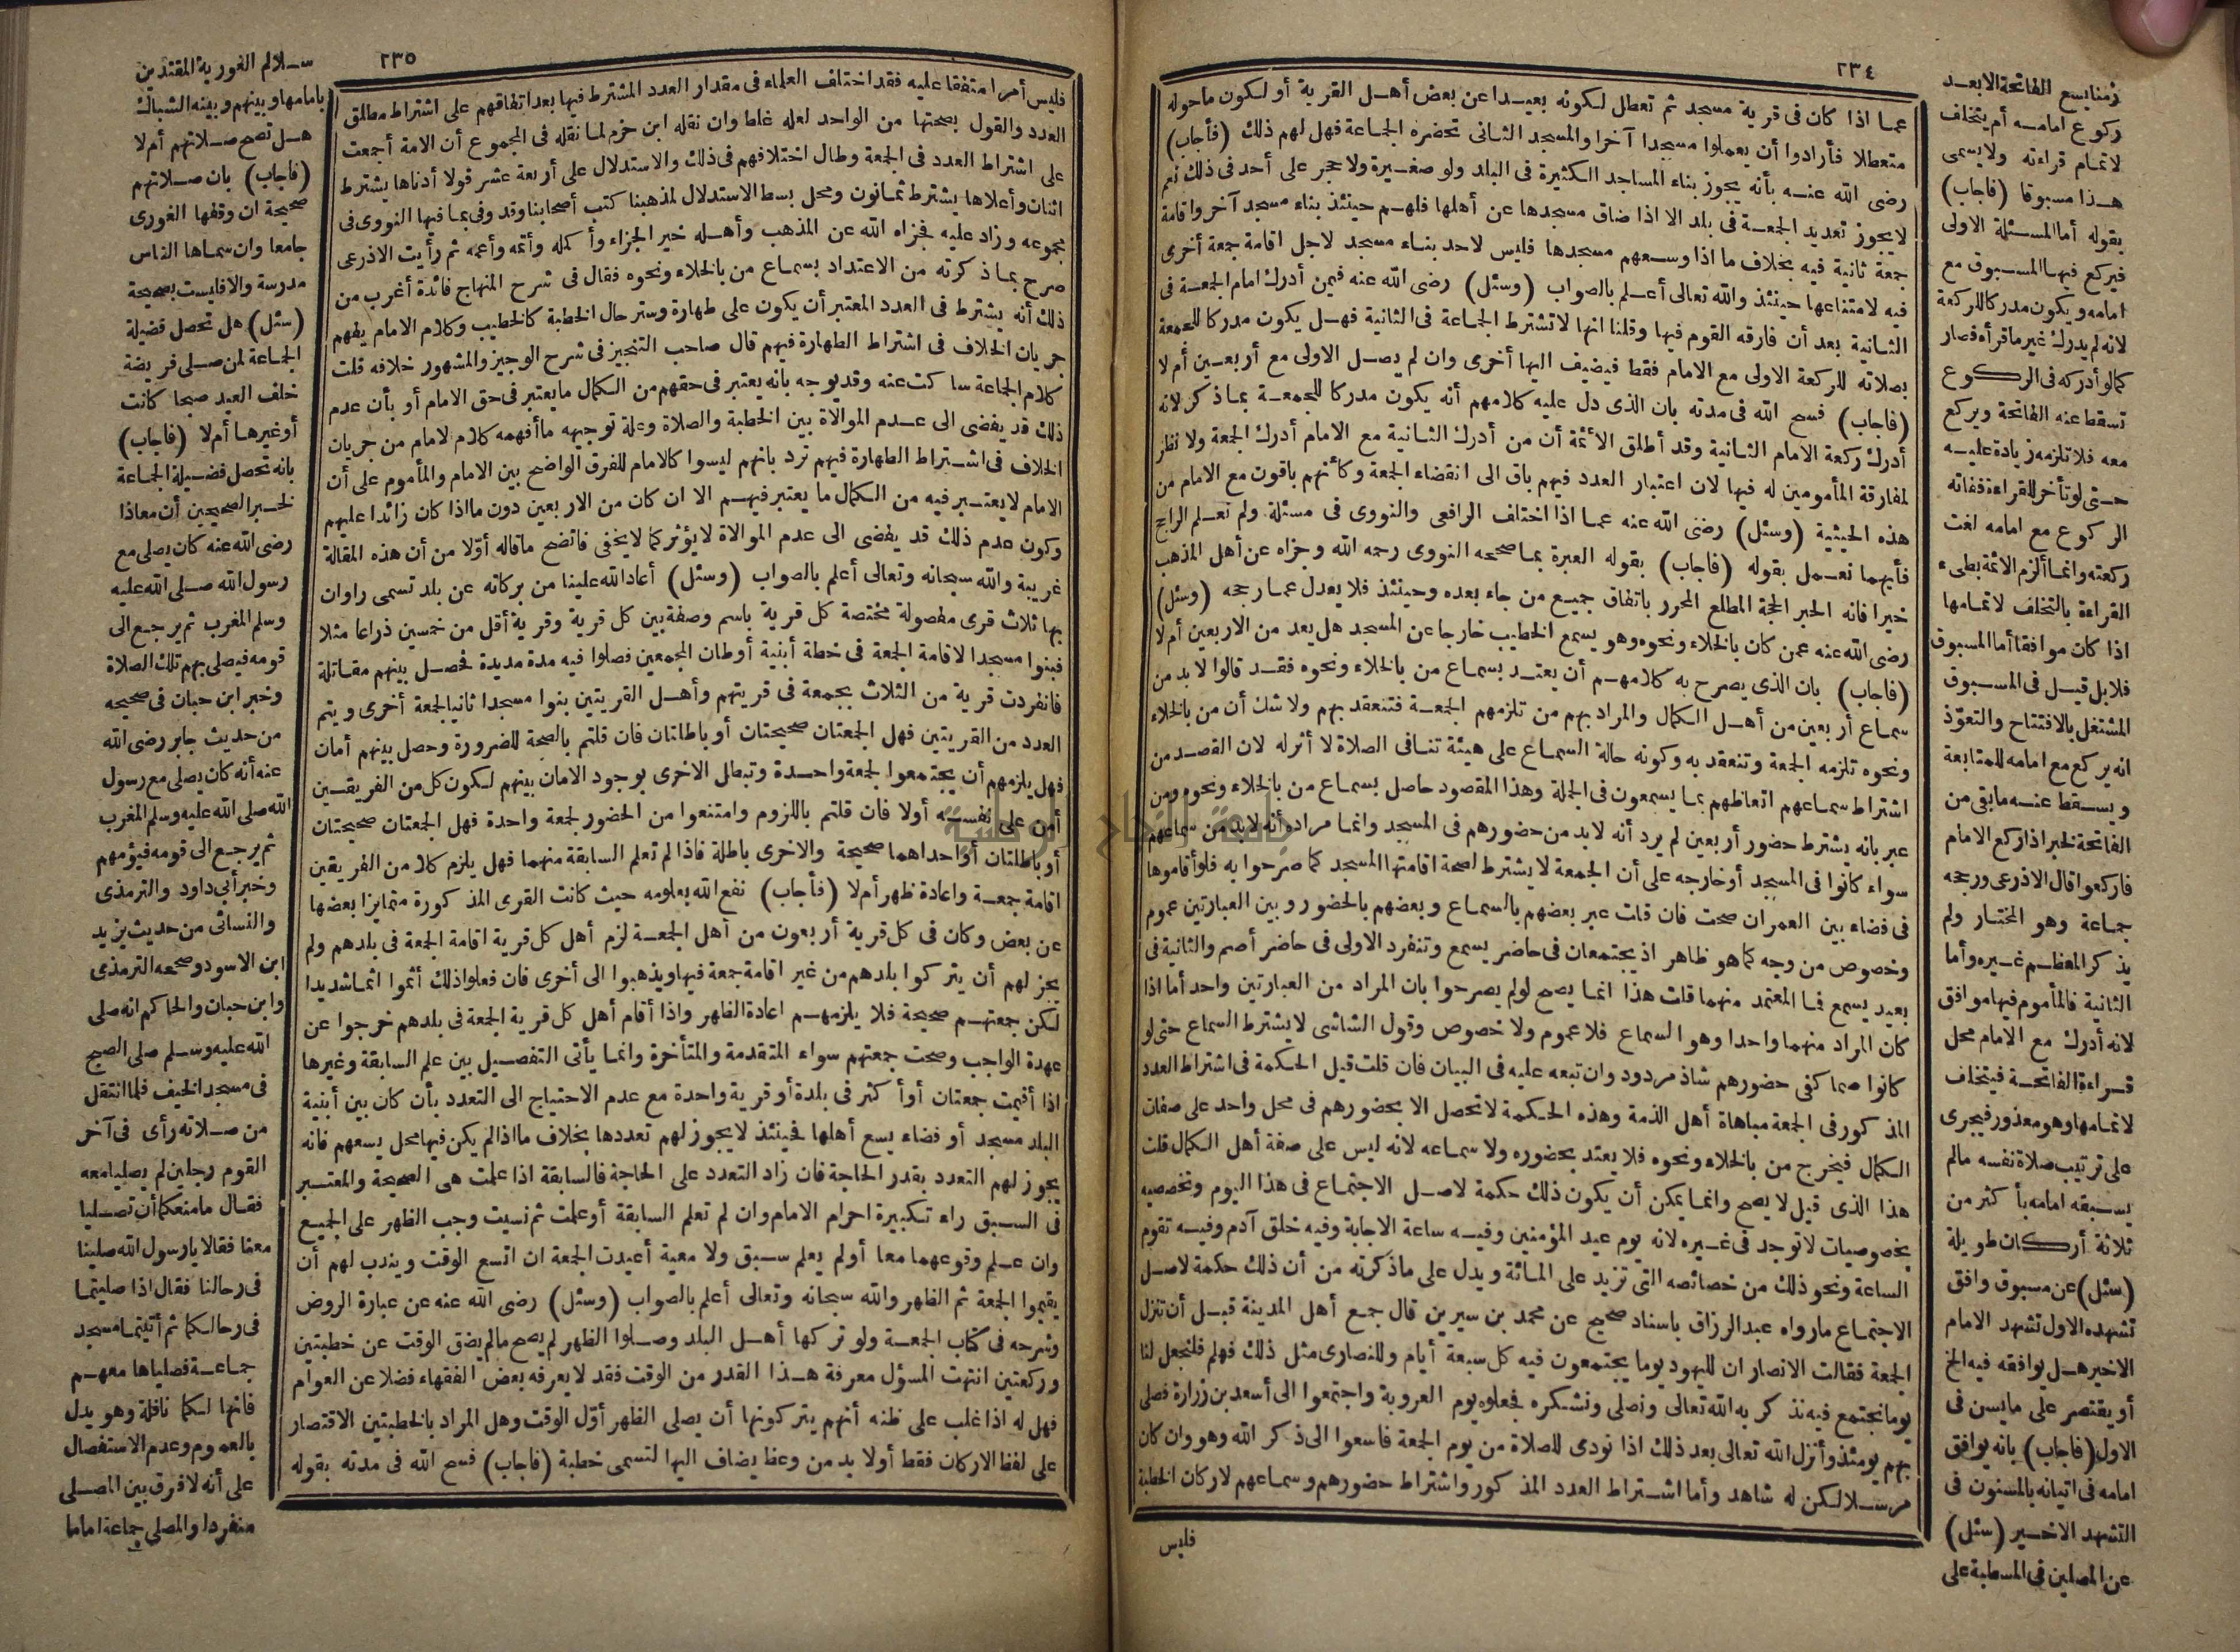 ٢٣٤
عما اذا كان فى قرية مسجد ثم تعطل لكونه بعيدا عن بعض أهل القرية أو لكون ماحوله
متعطلا فأرادوا أن يعملوا مسجدا آخرا والمسجد الثانى تحضره الجماعة فهل لهم ذلك (فأجاب)
رضى الله عنه بأنه يجوز بناء المساجد الكثيرة فى البلد ولو صغيرة ولا حجر على أحد فى ذلك نعم
لا يجوز تعديد الجمعة فى بلد الا اذا ضاق مسجدها عن أهلها فلهم حينئذ بناء مسجد آخر واقامة
جمعة ثانية فيه بخلاف ما اذا وسعهم مسجدها فليس لاحد بناء مسجد لاجل اقامة جمعة أخرى
فيه لامتناعها حينئذ والله تعالى أعلم بالصواب (وسئل) رضى الله عنه فيمن أدرك امام الجمعة فى
الثانية بعد أن فارقه القوم فيها وقلنا انها لا تشترط الجماعة فى الثانية فهل يكون مدركا للجمعة
بصلاته للركعة الاولى مع الامام فقط فيضيف اليها أخرى وان لم يصل الاولى مع أربعين أم لا
(فاجاب) فسح الله فى مدته بان الذى دل عليه كلامهم أنه يكون مدركا للجمعة بماذكر لانه
أدرك ركعة الامام الثانية وقد أطلق الأئمة أن من أدرك الثانية مع الامام أدرك الجمعة ولا نظر
لمفارقة المأمومين له فيها لان اعتبار العدد فيهم باق الى انقضاء الجمعة وكأنهم باقون مع الامام من
هذه الحيثية (وسئل) رضى الله عنه عما اذا اختلف الرافعى والنووى فى مسئلة ولم نعلم الراجح
فأيهما نعمل بقوله (فاجاب) بقوله العبرة بما صححه النووى رحمه الله وجزاه عن أهل المذهب
خيرا فانه الحبر الحجة المطلع المحرر باتفاق جميع من جاء بعده وحينئذ فلا يعدل عما رجحه (وسئل)
رضى الله عنه عمن كان بالخلاء ونحوه وهو يسمع الخطيب خارجا عن المسجد هل يعد من الاربعين أم لا
(فاجاب) بان الذى يصرح به كلامهم أن يعتد بسماع من بالخلاء ونحوه فقد قالوا لا بد من
سماع أربعين من أهل الكمال والمراد بهم من تلزمهم الجمعة فتنعقد بهم ولا شك أن من بالخلاء
ونحوه تلزمه الجمعة وتنعقد به وكونه حالة السماع على هيئة تنافى الصلاة لا أثر له لان القصد من
اشتراط سماعهم اتعاظهم بما يسمعون فى الجملة وهذا المقصود حاصل بسماع من بالخلاء ونحوه ومن
عبر بانه يشترط حضور أربعين لم يرد أنه لا بد من حضورهم فى المسجد وانما مراده أنه لابد من سماعهم
سواء كانوا فى المسجد أو خارجه على أن الجمعة لا يشترط لصحة اقامتها المسجد كما صرحوا به فلو أقاموها
فى فضاء بين العمران صحت فان قلت عبر بعضهم بالسماع وبعضهم بالحضور وبين العبارتين عموم
وخصوص من وجه كما هو ظاهر اذ يجتمعان فى حاضر يسمع وتنفرد الاولى فى حاضر أصم والثانية فى
بعيد يسمع فما المعتمد منهما قلت هذا انما يصح لو لم يصرحوا بان المراد من العبارتين واحد أما اذا
كان المراد منهما واحدا وهو السماع فلا عموم ولا خصوص وقول الشاشى لا يشترط السماع حتى لو
كانوا صما كفى حضورهم شاذ مردود وان تبعه عليه فى البيان فان قلت قيل الحكمة فى اشتراط العدد
المذكور فى الجمعة مباهاة أهل الذمة وهذه الحكمة لا تحصل الا بحضورهم فى محل واحد على صفات
الكمال فيخرج من بالخلاء ونحوه فلا يعتد بحضوره ولا سماعه لانه ليس على صفة أهل الكمال قلت
هذا الذى قيل لا يصح وانما يمكن أن يكون ذلك حكمة لاصل الاجتماع فى هذا اليوم وتخصيصه
بخصوصيات لا توجد فى غيره لانه يوم عيد المؤمنين وفيه ساعة الاجابة وفيه خلق آدم وفيه تقوم
الساعة ونحو ذلك من خصائصه التى تزيد على المائة ويدل على ماذكرته من أن ذلك حكمة لاصل
الاجتماع مارواه عبد الرزاق باسناد صحيح عن محمد بن سيرين قال جمع أهل المدينة قبل أن تنزل
الجمعة فقالت الانصار ان لليهود يوما يجتمعون فيه كل سبعة أيام وللنصارى مثل ذلك فهلم فلنجعل لنا
يوما نجتمع فيه نذكر به الله تعالى ونصلى ونشكره فجعلوه يوم العروبة واجتمعوا الى أسعد بن زرارة فصلى
بهم يومئذ وأنزل الله تعالى بعد ذلك اذا نودى للصلاة من يوم الجمعة فاسعوا الى ذكر الله وهو وان كان
مرسلا لكن له شاهد وأما اشتراط العدد المذكور واشتراط حضورهم وسماعهم لاركان الخطبة
فليس
زمنا يسع الفاتحة الا بعد
ركوع امامه أم يتخلف
لاتمام قراءته ولا يسمى
هذا مسبوقا (فاجاب)
بقوله أما المسئلة الاولى
فيركع فيها المسبوق مع
امامه ويكون مدركا للركعة
لانه لم يدرك غير ما قرأه فصار
كما لو أدركه فى الركوع
تسقط عنه الفاتحة ويركع
معه فلا تلزمه زيادة عليه
حتى لو تأخر للقراءة ففاته
الركوع مع امامه لغت
ركعته وانما ألزم الائمة بطىء
القراءة بالتخلف لاتمامها
اذا كان موافقا أما المسبوق
فلا بل قيل فى المسبوق
المشتغل بالافتتاح والتعوّذ
انه يركع مع امامه للمتابعة
ويسقط عنه ما بقى من
الفاتحة لخبر اذا ركع الامام
فاركعوا قال الاذرعى ورجحه
جماعة وهو المختار ولم
يذكر المعظم غيره وأما
الثانية فالمأموم فيها موافق
لانه أدرك مع الامام محل
قراءة الفاتحة فيتخلف
لاتمامها وهو معذور فيجرى
على ترتيب صلاة نفسه مالم
يسبقه امامه بأكثر من
ثلاثة أركان طويلة
(سئل) عن مسبوق وافق
تشهده الاول تشهد الامام
الاخير هل يوافقه فيه الخ
أو يقتصر على مايسن فى
الاول (فاجاب) بانه يوافق
امامه فى اتيانه بالمسنون فى
التشهد الاخير (سئل)
عن المصلين فى المسطبة على
٢٣٥
فليس أمرا متفقا عليه فقد اختلف العلماء فى مقدار العدد المشترط فيها بعد اتفاقهم على اشتراط مطلق
العدد والقول بصحتها من الواحد لعله غلط وان نقله ابن حزم لما نقله فى المجموع أن الامة أجمعت
على اشتراط العدد فى الجمعة وطال اختلافهم فى ذلك والاستدلال على أربعة عشر قولا أدناها يشترط
اثنان وأعلاها يشترط ثمانون ومحل بسط الاستدلال لمذهبنا كتب أصحابنا وقد وفى بما فيها النووى فى
مجموعه وزاد عليه فجزاه الله عن المذهب وأهله خير الجزاء وأكمله وأتمه وأعمه ثم رأيت الاذرعى
صرح بماذكرته من الاعتداد بسماع من بالخلاء ونحوه فقال فى شرح المنهاج فائدة أغرب من
ذلك أنه يشترط فى العدد المعتبر أن يكون على طهارة وستر حال الخطبة كالخطيب وكلام الامام يفهم
جريان الخلاف فى اشتراط الطهارة فيهم قال صاحب التنجيز فى شرح الوجيز والمشهور خلافه قلت
كلام الجماعة ساكت عنه وقد يوجه بانه يعتبر فى حقهم من الكمال مايعتبر فى حق الامام أو بأن عدم
ذلك قد يفضى الى عدم الموالاة بين الخطبة والصلاة وعلة توجيهه ما أفهمه كلام لامام من جريان
الخلاف فى اشتراط الطهارة فيهم ترد بانهم ليسوا كالامام للفرق الواضح بين الامام والمأموم على أن
الامام لا يعتبر فيه من الكمال ما يعتبر فيهم الا ان كان من الاربعين دون ما اذا كان زائدا عليهم
وكون عدم ذلك قد يفضى الى عدم الموالاة لا يؤثر كما لا يخفى فاتضح ماقاله أوّلا من أن هذه المقالة
غريبة والله سبحانه وتعالى أعلم بالصواب (وسئل) أعاد الله علينا من بركاته عن بلد تسمى راوان
بها ثلاث قرى مفصولة مختصة كل قرية باسم وصفة بين كل قرية وقرية أقل من خمسين ذراعا مثلا
فبنوا مسجدا لاقامة الجمعة فى خطة أبنية أوطان المجمعين فصلوا فيه مدة مديدة فحصل بينهم مقاتلة
فانفردت قرية من الثلاث بجمعة فى قريتهم وأهل القريتين بنوا مسجدا ثانيا لجمعة أخرى ويتم
العدد من القريتين فهل الجمعتان صحيحتان أو باطلتان فان قلتم بالصحة للضرورة وحصل بينهم أمان
فهل يلزمهم أن يجتمعوا لجمعة واحدة وتبطل الاخرى بوجود الامان بينهم لكون كل من الفريقين
أمن على نفسه أولا فان قلتم باللزوم وامتنعوا من الحضور لجمعة واحدة فهل الجمعتان صحيحتان
أو باطلتان أو احداهما صحيحة والاخرى باطلة فاذا لم تعلم السابقة منهما فهل يلزم كلا من الفريقين
اقامة جمعة واعادة ظهر أم لا (فأجاب) نفع الله بعلومه حيث كانت القرى المذكورة متمايزا بعضها
عن بعض وكان فى كل قرية أربعون من أهل الجمعة لزم أهل كل قرية اقامة الجمعة فى بلدهم ولم
يجز لهم أن يتركوا بلدهم من غير اقامة جمعة فيها ويذهبوا الى أخرى فان فعلوا ذلك أثموا اثما شديدا
لكن جمعتهم صحيحة فلا يلزمهم اعادة الظهر واذا أقام أهل كل قرية الجمعة فى بلدهم خرجوا عن
عهدة الواجب وصحت جمعتهم سواء المتقدمة والمتأخرة وانما يأتى التفصيل بين علم السابقة وغيرها
اذا أقيمت جمعتان أو أكثر فى بلدة أو قرية واحدة مع عدم الاحتياج الى التعدد بأن كان بين أبنية
البلد مسجد أو فضاء يسع أهلها فحينئذ لا يجوز لهم تعددها بخلاف ما اذا لم يكن فيها محل يسعهم فانه
يجوز لهم التعدد بقدر الحاجة فان زاد التعدد على الحاجة فالسابقة اذا علمت هى الصحيحة والمعتبر
فى السبق راء تكبيرة احرام الامام وان لم تعلم السابقة أو علمت ثم نسيت وجب الظهر على الجميع
وان علم وقوعهما معا أو لم يعلم سبق ولا معية أعيدت الجمعة ان اتسع الوقت ويندب لهم أن
يقيموا الجمعة ثم الظهر والله سبحانه وتعالى أعلم بالصواب (وسئل) رضى الله عنه عن عبارة الروض
وشرحه فى كتاب الجمعة ولو تركها أهل البلد وصلوا الظهر لم يصح مالم يضق الوقت عن خطبتين
وركعتين انتهت المسؤل معرفة هذا القدر من الوقت فقد لا يعرفه بعض الفقهاء فضلا عن العوام
فهل له اذا غلب على ظنه أنهم يتركونها أن يصلى الظهر أوّل الوقت وهل المراد بالخطبتين الاقتصار
على لفظ الاركان فقط أولا بد من وعظ يضاف اليها لتسمى خطبة (فاجاب) فسح الله فى مدته بقوله
سلالم الغورية المقتدين
بامامها وبينهم وبينه الشباك
هل تصح صلاتهم أم لا
(فاجاب) بان صلاتهم
صحيحة ان وقفها الغورى
جامعا وان سماها الناس
مدرسة والا فليست بصحيحة
(سئل) هل تحصل فضيلة
الجماعة لمن صلى فريضة
خلف العيد صبحا كانت
أو غيرها أم لا (فاجاب)
بانه تحصل فضيلة الجماعة
لخبر الصحيحين أن معاذا
رضى الله عنه كان يصلى مع
رسول الله صلى الله عليه
وسلم المغرب ثم يرجع الى
قومه فيصلى بهم تلك الصلاة
وخبر ابن حبان فى صحيحه
من حديث جابر رضى الله
عنه أنه كان يصلى مع رسول
الله صلى الله عليه وسلم المغرب
ثم يرجع الى قومه فيؤمهم
وخبر أبى داود والترمذى
والنسائى من حديث يزيد
ابن الاسود وصححه الترمذى
وابن حبان والحاكم انه صلى
الله عليه وسلم صلى الصبح
فى مسجد الخيف فلما انتقل
من صلاته رأى فى آخر
القوم رجلين لم يصليا معه
فقال ما منعكما أن تصليا
معنا فقالا يا رسول الله صلينا
فى رحالنا فقال اذا صليتما
فى رحالكما ثم أتيتما مسجد
جماعة فصلياها معهم
فانها لكما نافلة وهو يدل
بالعموم وعدم الاستفصال
على أنه لا فرق بين المصلى
منفردا والمصلى جماعة اماما